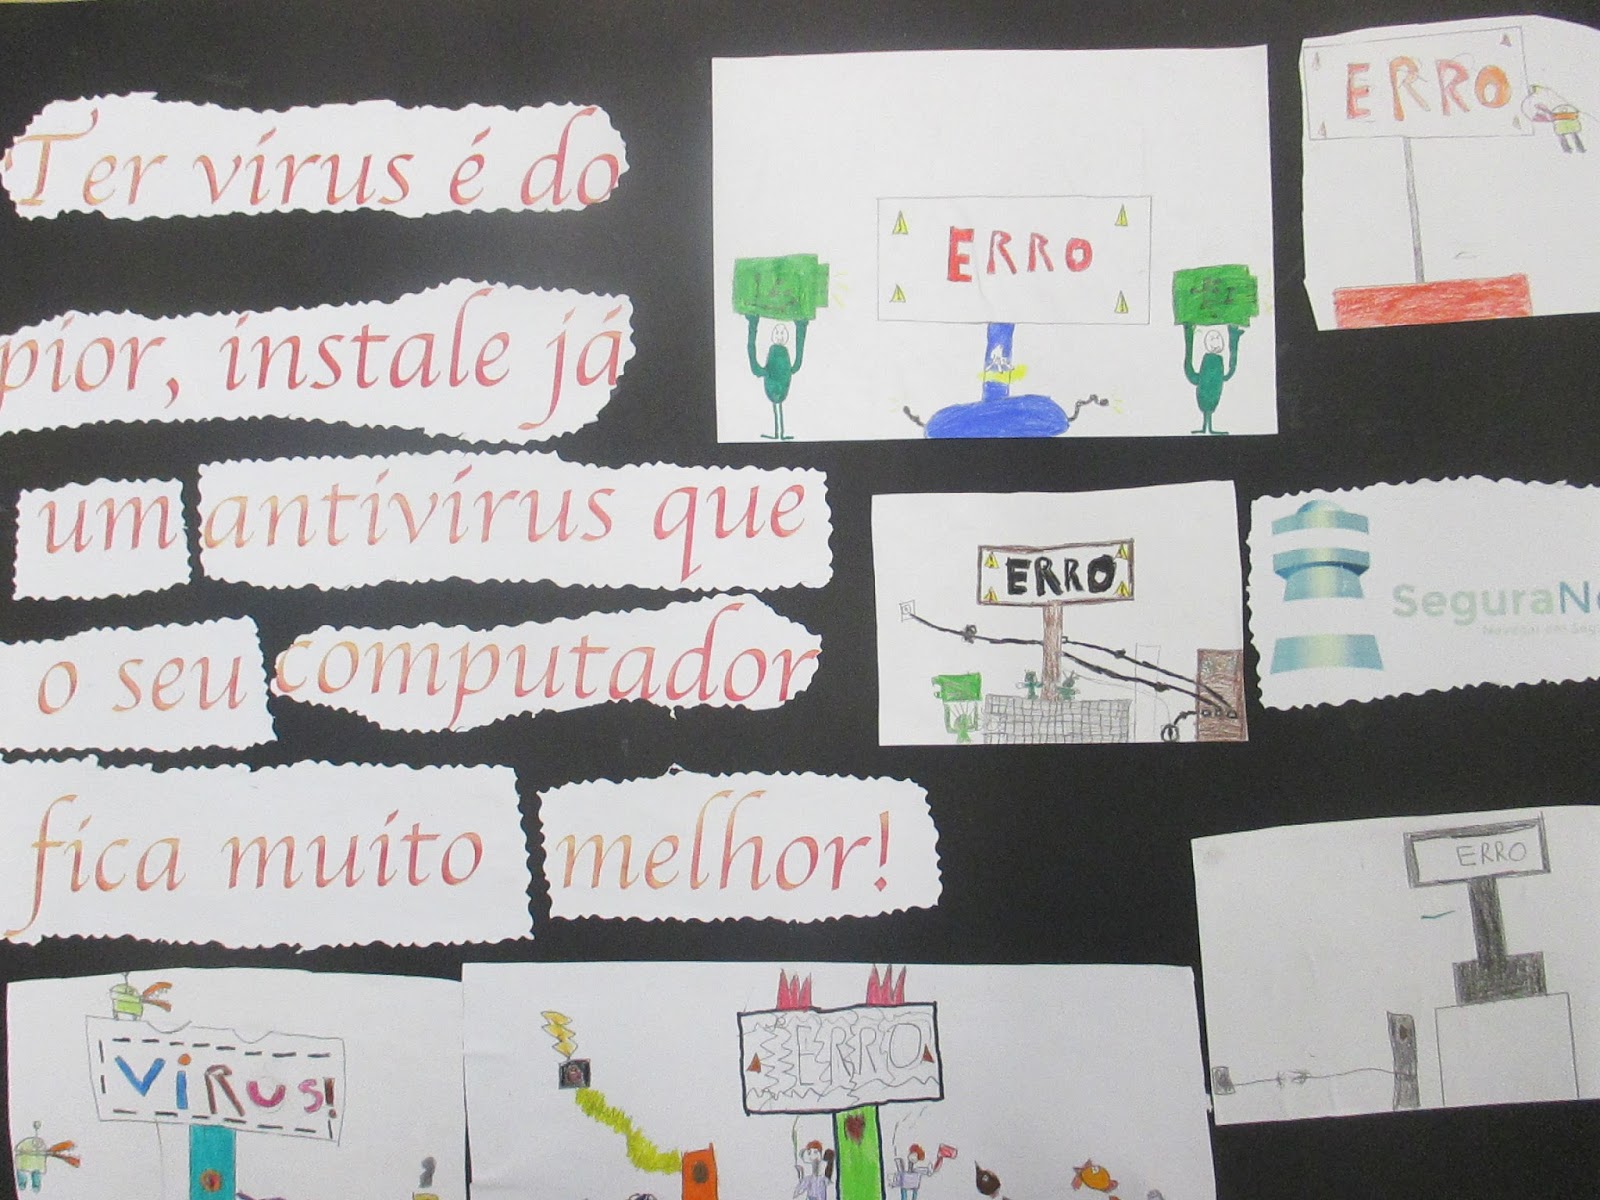 Ter vírus é do
pior, instale já
um antivírus que
o seu computador
fica muito melhor!
ERRO
ERRO
ERRO
SeguraNe
ERRO
VIRUS!
ERRO